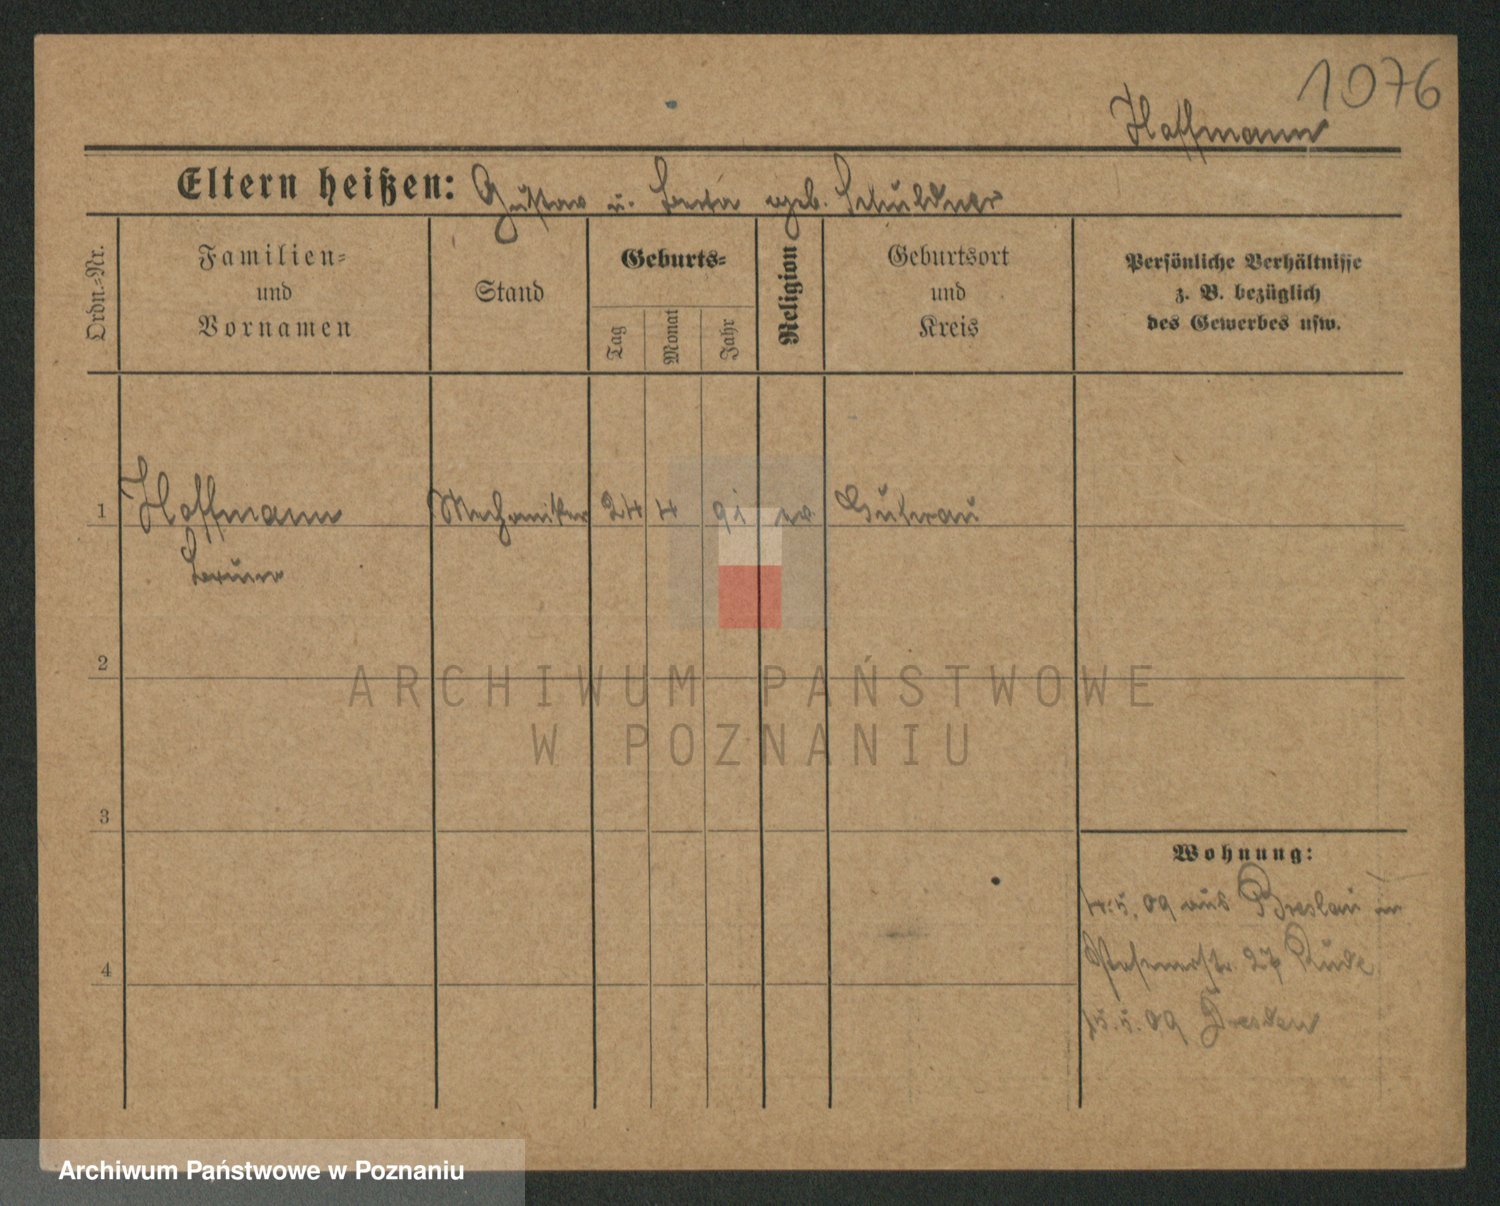 1076
Hoffmann
Eltern heißen: Gustav u. Berta geb. Schuldner
Ordn.-Nr.
Familien-
und
Vornamen
Stand
Geburts-
Tag
Monat
Jahr
Religion
Geburtsort
und
Kreis
Persönliche Verhältnisse
z. B. bezüglich
des Gewerbes usw.
1 Hoffmann Mechaniker 24 4 91 ev Guhrau
Bruno
2
ARCHIWUM PAŃSTWOWE
W POZNANIU
3
Wohnung:
09 aus Breslau in
4
27 Rude
15.5.09 Dresden
Archiwum Państwowe w Poznaniu